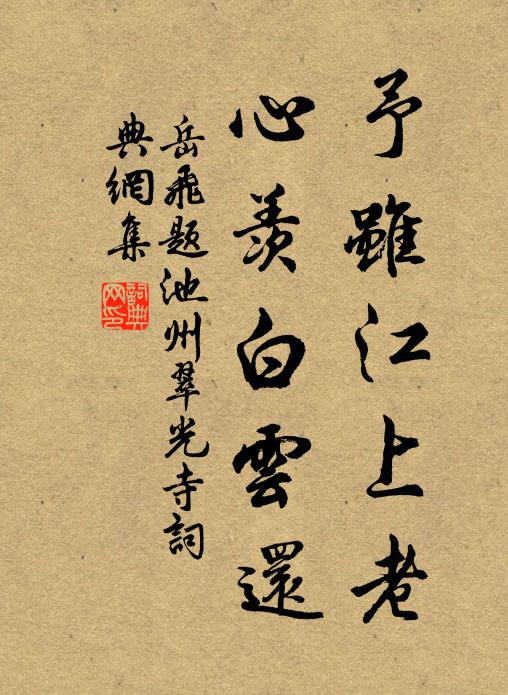 予雖江上老
心羨白雲還
岳飛題池州翠光寺詞
典網集
詞典網印